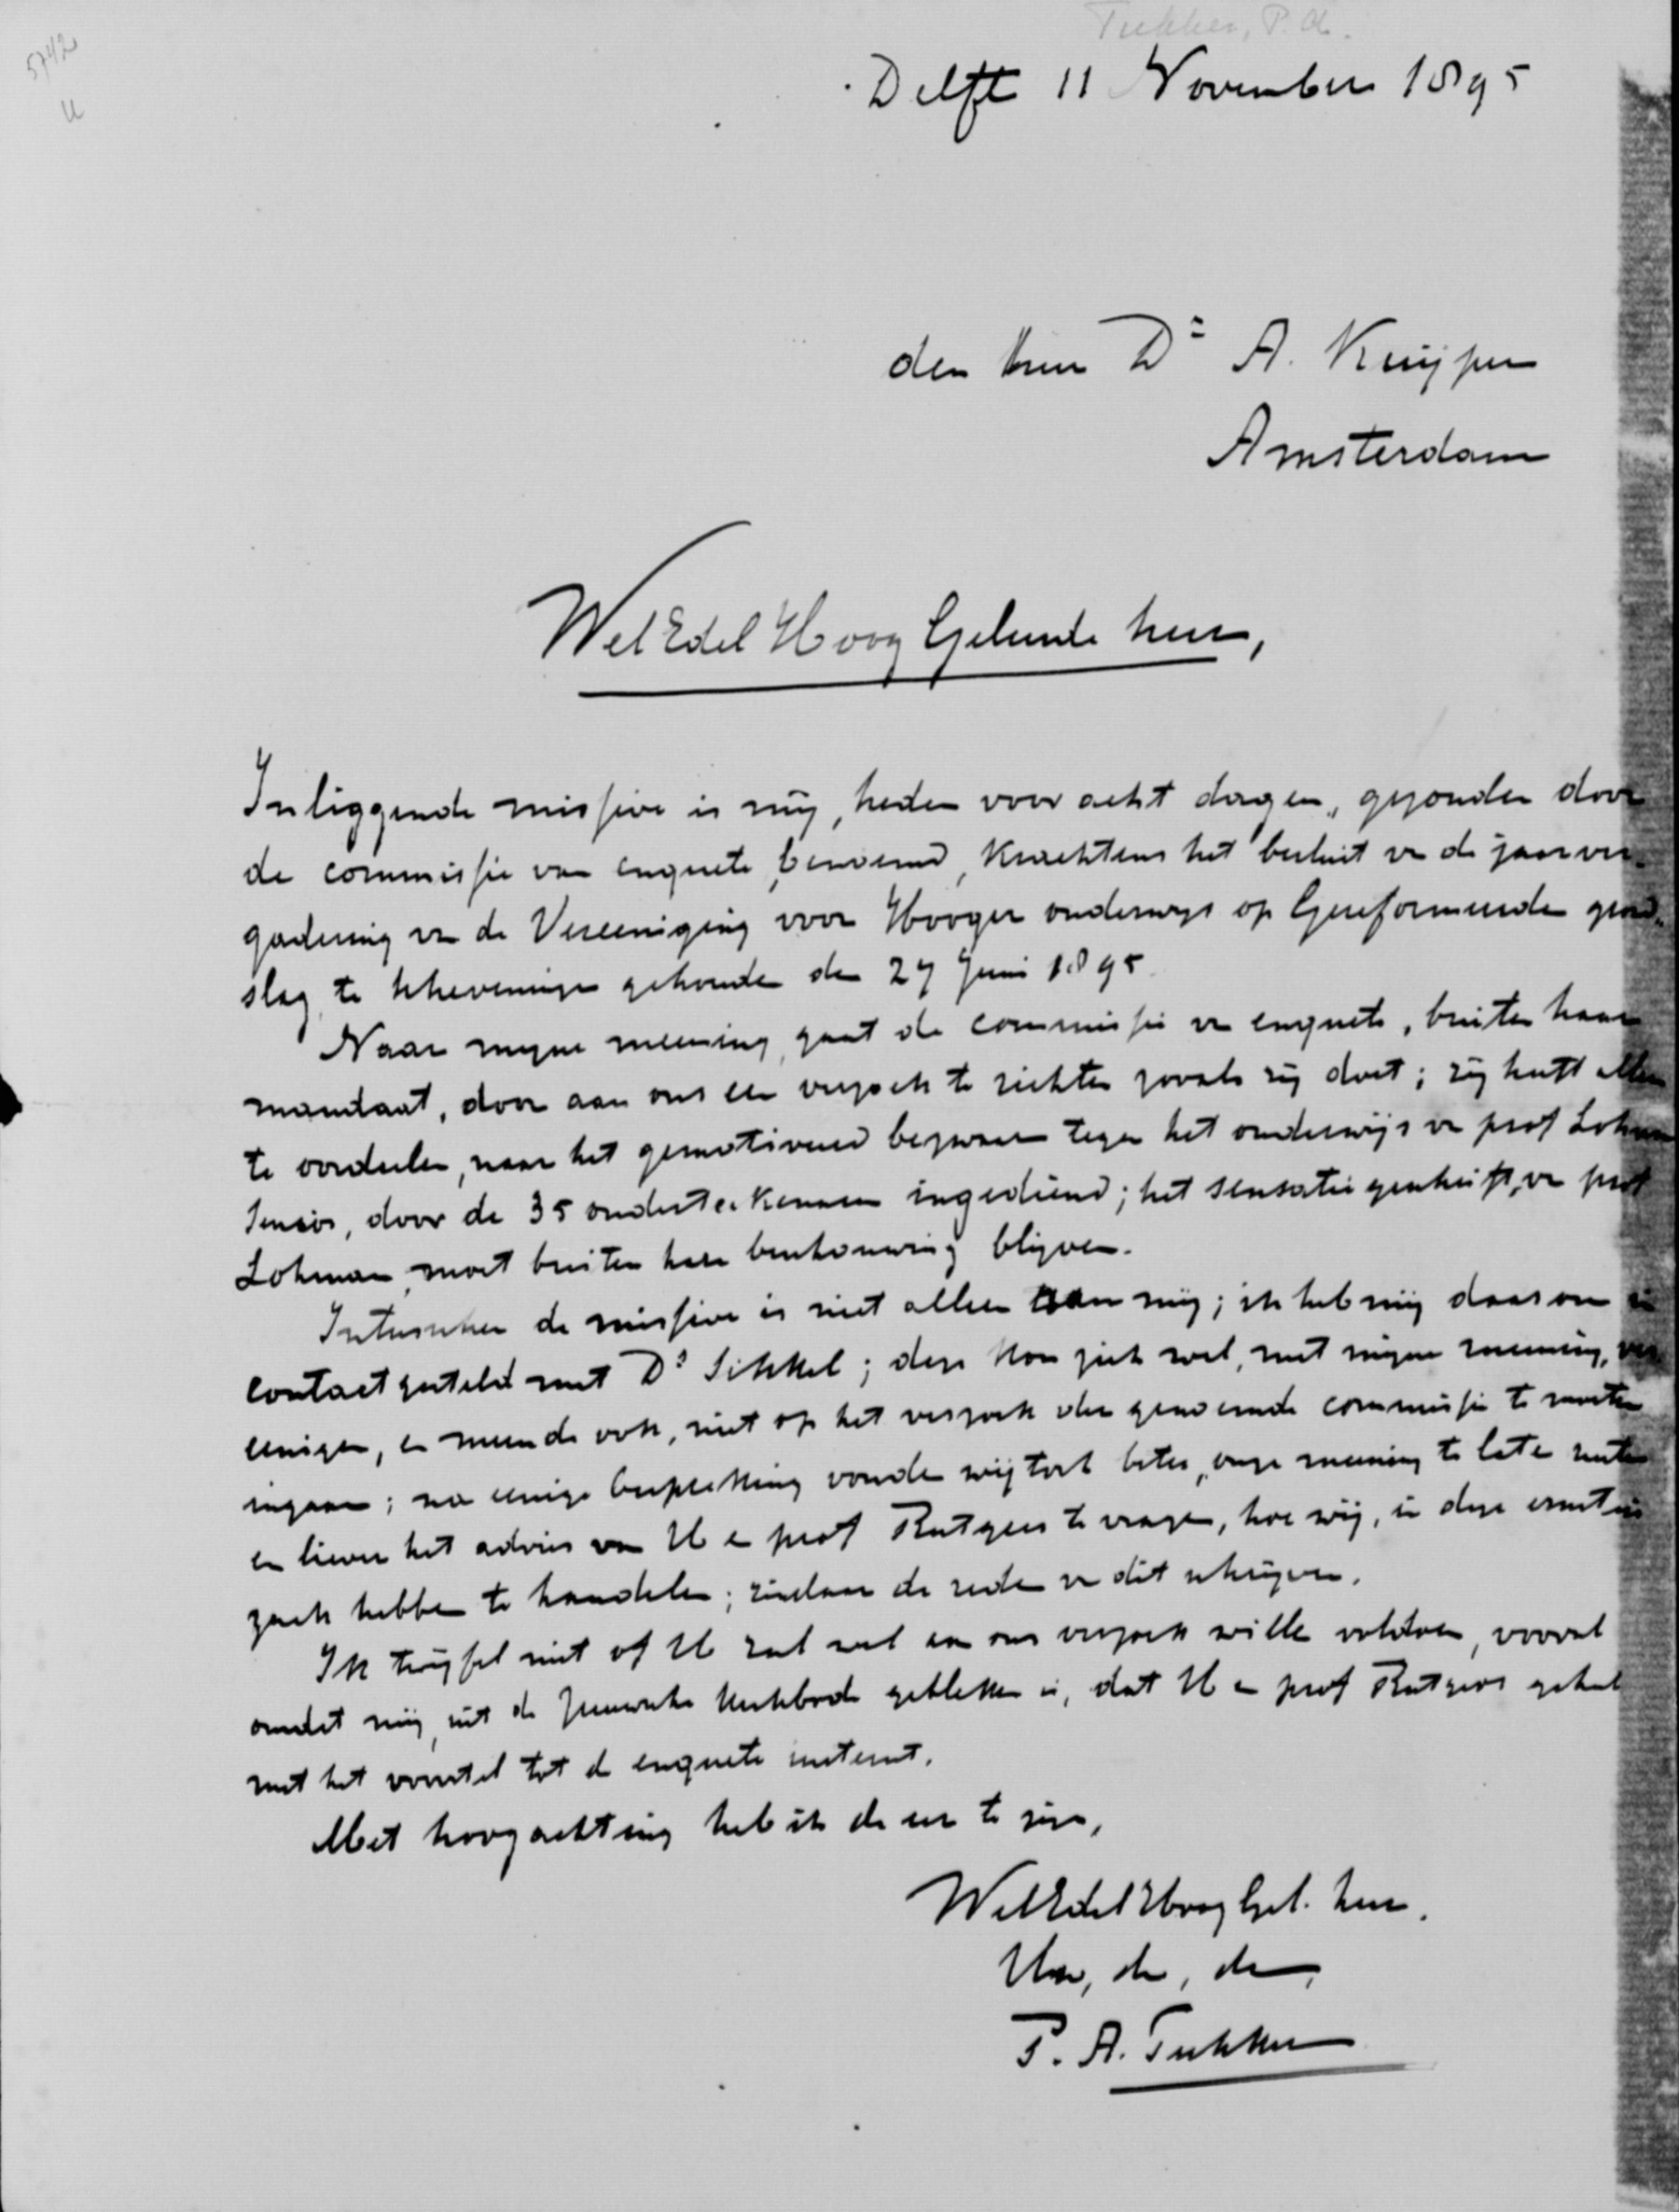 Tukker, P. A.
5742
Delft 11 November 1895
den heer Dr A. Kuijper
Amsterdam
WelEdel HoogGeleerde heer,
Inliggende missive is mij, heden voor acht dagen, gezonden door
de commissie van enquete, benoemd, krachtens het besluit v. d. jaarver-
gadering v. de Vereeniging voor Hooger onderwijs op Gereformeerden grond-
slag, te Scheveningen gehouden den 27 Juni 1895.
Naar mijne meening, gaat de commissie v. enquete, buiten haar
mandaat, door aan ons een verzoek te richten zooals zij doet; zij heeft alleen
te oordeelen, naar het gemotiveerd bezwaar tegen het onderwijs v. prof Lohman
Senior, door de 35 onderteekenaren ingediend; het sensatie geschrift, v. prof
Lohman, moet buiten hare beschouwing blijven.
Intusschen de missive is niet alleen aan mij; ik heb mij daarom in
contact gesteld met Ds Sikkel; deze kon zich wel, met mijne meening, ver-
eenigen, en meende ook, niet op het verzoek der genoemde commissie te moeten
ingaan; na eenige bespreking vonden wij toch beter, onze meening te laten rusten
en liever het advies van U en prof Rutgers te vragen, hoe wij, in deze ernstige
zaak hebben te handelen; ziedaar de reden v. dit schrijven.
Ik twijfel niet of U zal wel aan ons verzoek willen voldoen, vooral
omdat mij, uit de Zeeuwsche Kerkbode gebleken is, dat U en prof Rutgers geheel
met het voorstel tot de enquete instemt.
Met hoogachting heb ik de eer te zijn,
WelEdelHoogGel. heer.
Uw, dw, dr,
P. A. Tukker